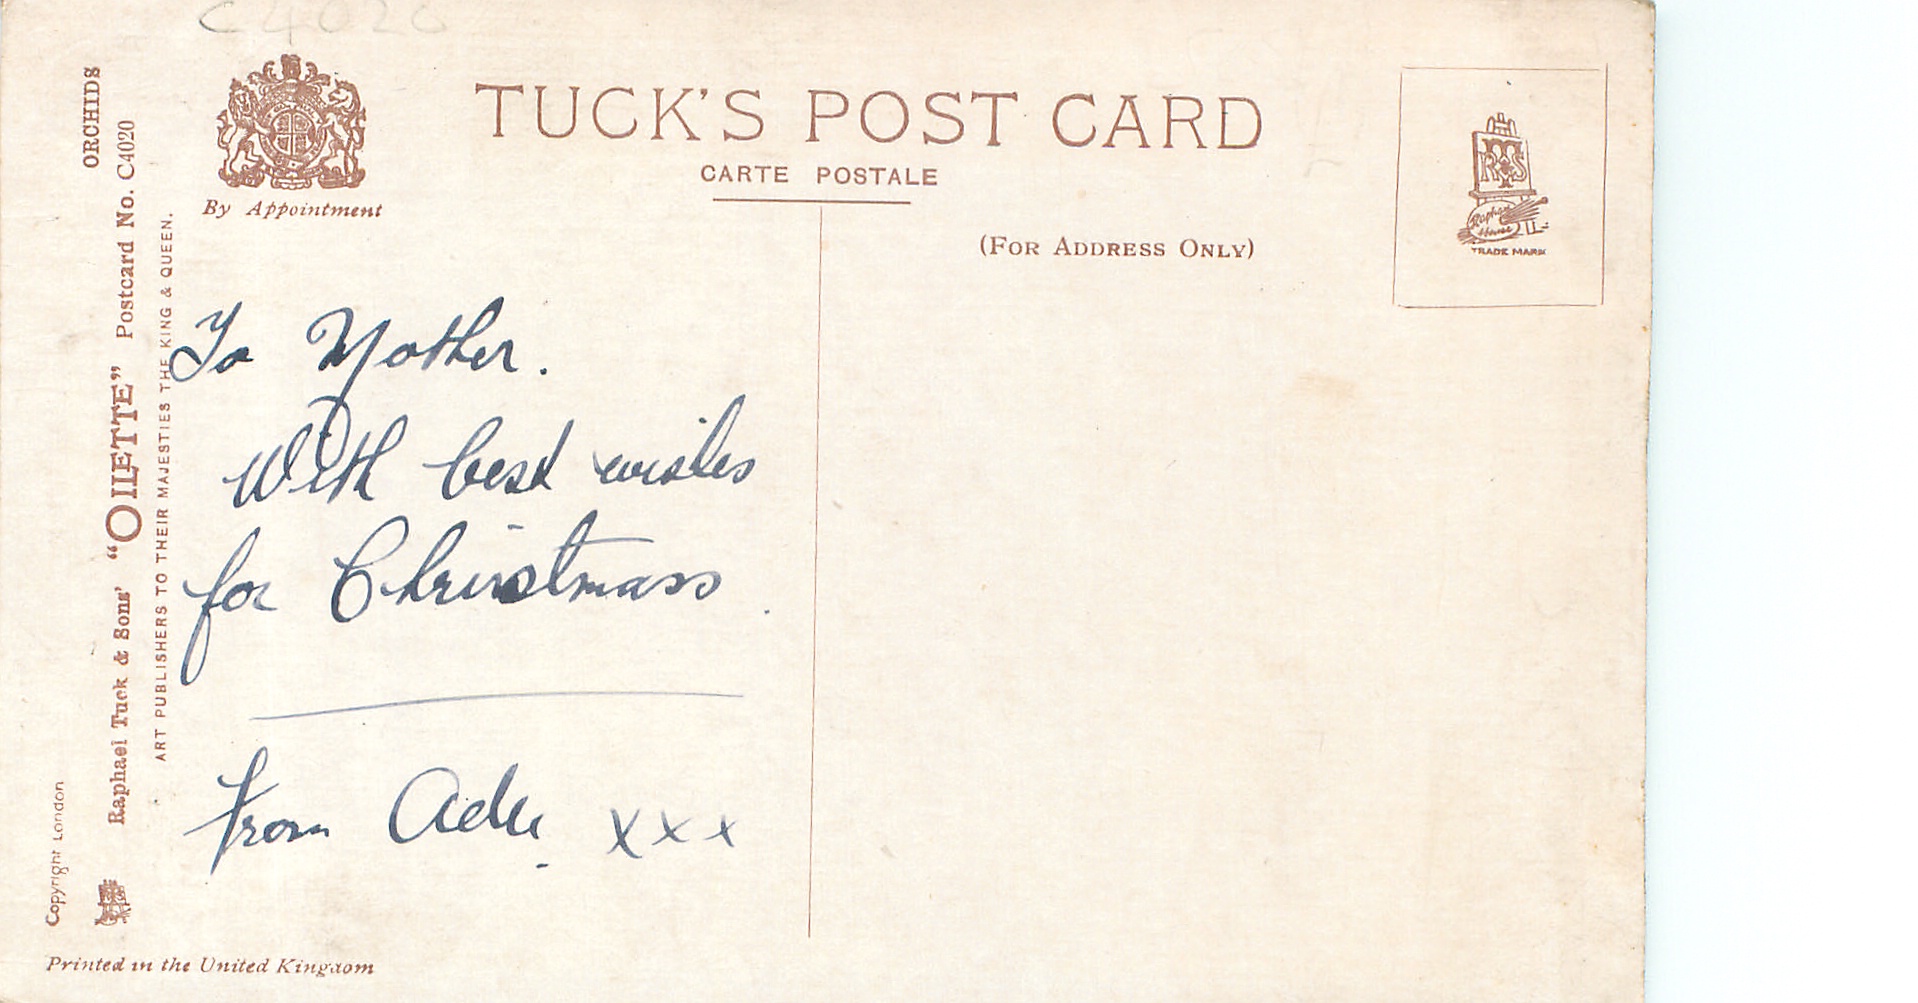 C4020
ORCHIDS
Raphael Tuck & Sons' "OILETTE" Postcard No. C4020
ART PUBLISHERS TO THEIR MAJESTIES THE KING & QUEEN.
Copyright London
By Appointment
TUCK'S POST CARD
CARTE POSTALE
(FOR ADDRESS ONLY)
RTS
Raphael
House
TRADE MARK
To Mother.
With best wishes
for Christmass.
from xxx
Printed in the United Kingdom